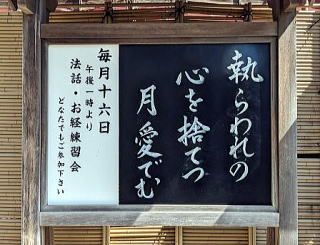 執らわれの
心を捨てつ
月愛でむ
毎月十六日
午後一時より
法話・お経練習会
どなたでもご参加下さい